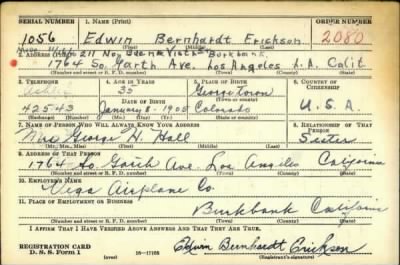 SERIAL NUMBER 1. NAME (Print) ORDER NUMBER
1056 Edwin Bernhardt Erickson 2080
(First) (Middle) (Last)
211 No. Buena Vista - Burbank
1764 So. Garth Ave. Los Angeles L.A. Calif.
(Number and street or R. F. D. number) (Town) (County) (State)
3. TELEPHONE 4. AGE IN YEARS 5. PLACE OF BIRTH 6. COUNTRY OF CITIZENSHIP
35 Georgetown
DATE OF BIRTH (Town or county)
42543 January 8 - 1905 Colorado U.S.A.
(Exchange) (Number) (Mo.) (Day) (Yr.) (State or country)
7. NAME OF PERSON WHO WILL ALWAYS KNOW YOUR ADDRESS 8. RELATIONSHIP OF THAT PERSON
Mrs. George H. Hall Sister
(Mr., Mrs., Miss) (First) (Middle) (Last)
9. ADDRESS OF THAT PERSON
1764 So. Garth Ave. Los Angeles California
(Number and street or R. F. D. number) (Town) (County) (State)
10. EMPLOYER'S NAME
Vega Airplane Co.
11. PLACE OF EMPLOYMENT OR BUSINESS
Burkbank California
(Number and street or R. F. D. number) (Town) (County) (State)
I AFFIRM THAT I HAVE VERIFIED ABOVE ANSWERS AND THAT THEY ARE TRUE.
REGISTRATION CARD
D. S. S. Form 1 16—17105 Edwin Bernhardt Erickson
(Registrant's signature)